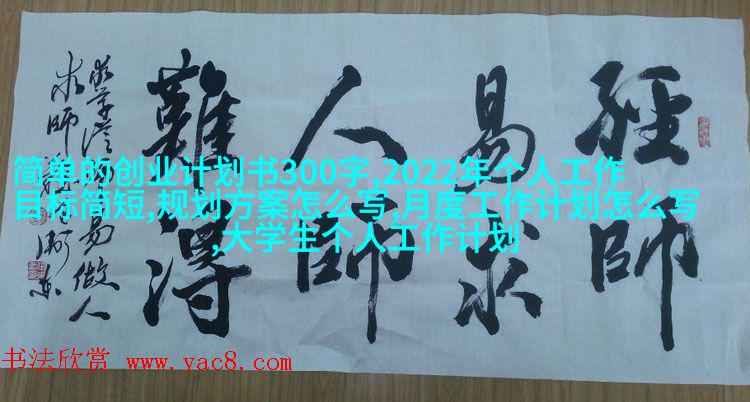 經師
易求
人師
難得
简单的创业计划书300字,2022年个人工作
目标简短,规划方案怎么写,月度工作计划怎么写
,大学生个人工作计划
书法欣赏 www.yac8.com